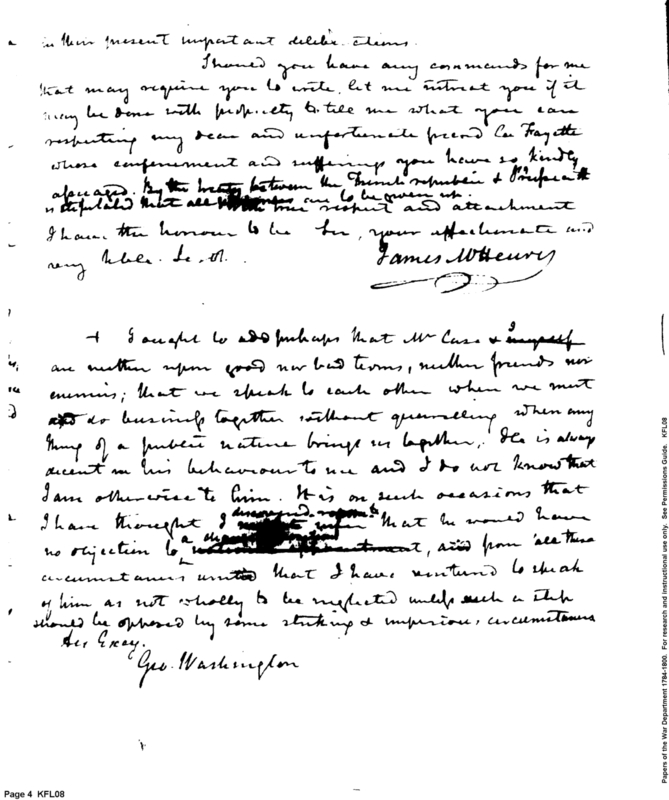 in their present important deliberations.
Should you have any commands for me
that may require you to write, let me intreat you if it
may be done with propriety to tell me what you can
respecting my dear and unfortunate friend La Fayette
whose confinement and sufferings you have so kindly
By the treaty between the French republic &
is stipulated that all are to be given up.
true respect and attachment
I have the honour to be Sir, your affectionate and
very hble. Se. vt.
James McHenry
+ I ought to add perhaps that Mr Case & I myself
are neither upon good nor bad terms, neither friends nor
enemies; that we speak to each other when we meet
and do business together without quarrelling when any
thing of a public nature brings us together. He is always
decent in his behaviour to me and I do not know that
I am otherwise to him. It is on such occasions that
I have thought I discovered that he would have
no objection to a appointment, and from all these
circumstances united that I have ventured to speak
of him as not wholly to be neglected unless such a step
should be opposed by some striking & imperious circumstances
His Excey.
Geo. Washington
Page 4 KFL08
Papers of the War Department 1784-1800. For research and instructional use only. See Permissions Guide. KFL08